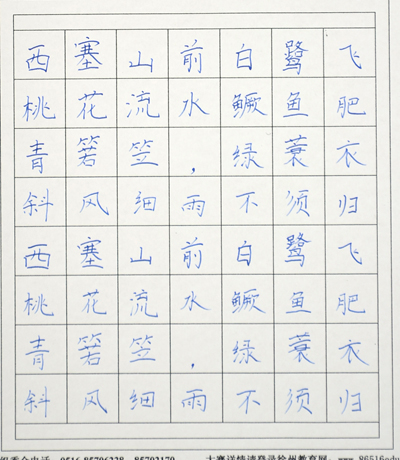 西塞山前白鹭飞
桃花流水鳜鱼肥
青箬笠，绿蓑衣
斜风细雨不须归
西塞山前白鹭飞
桃花流水鳜鱼肥
青箬笠，绿蓑衣
斜风细雨不须归
大赛详情请登录徐州教育网：www.86516edu